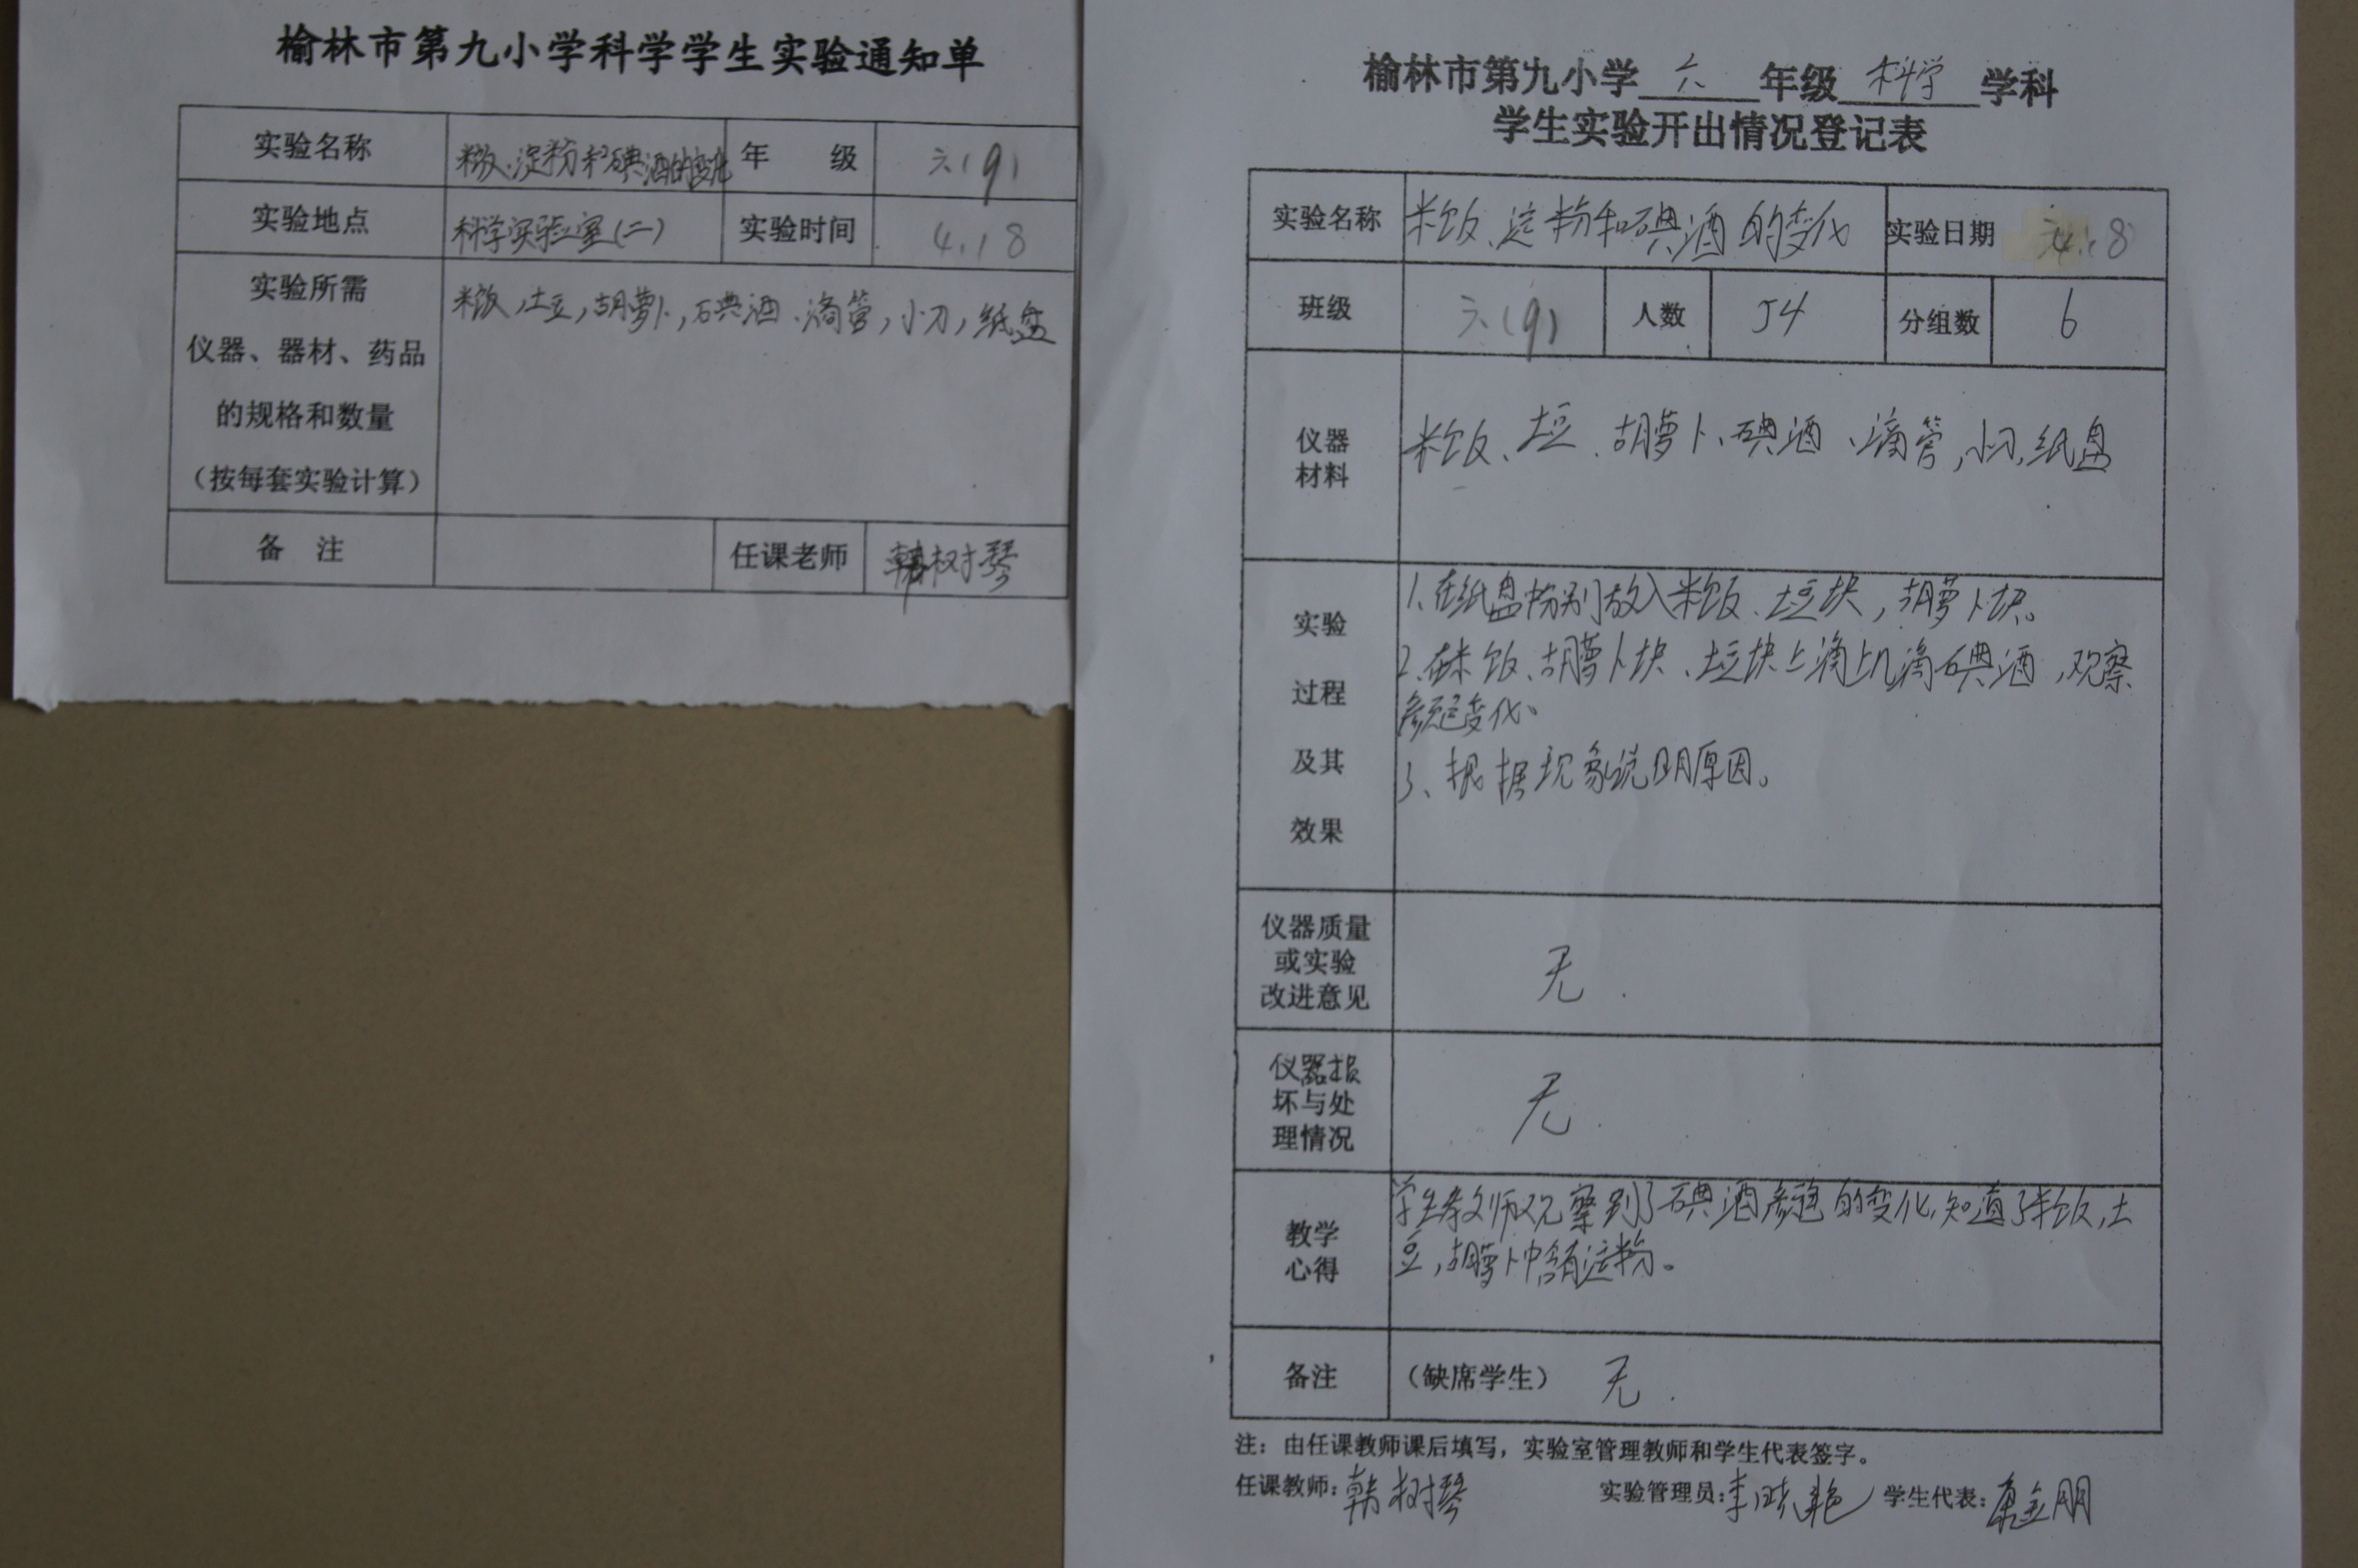 榆林市第九小学科学学生实验通知单
实验名称 米饭、淀粉和碘酒的变化 年 级 六(9)
实验地点 科学实验室(二) 实验时间 4.18
实验所需
仪器、器材、药品
的规格和数量
(按每套实验计算)
米饭,土豆,胡萝卜,碘酒、滴管,小刀,纸盘
备 注 任课老师 韩树琴
榆林市第九小学 六 年级 科学 学科
学生实验开出情况登记表
实验名称 米饭、淀粉和碘酒的变化 实验日期 4.18
班级 六(9) 人数 54 分组数 6
仪器
材料
米饭、土豆、胡萝卜、碘酒、滴管,小刀,纸盘
实验
过程
及其
效果
1、在纸盘中分别放入米饭、土豆块,胡萝卜块。
2、在米饭、胡萝卜块、土豆块上滴上几滴碘酒,观察
颜色变化、
3、根据现象说明原因。
仪器质量
或实验
改进意见
无.
仪器损
坏与处
理情况
无.
教学
心得
学生教师观察到了碘酒颜色的变化,知道了米饭,土
豆,胡萝卜中含有淀粉。
备注 (缺席学生) 无.
注:由任课教师课后填写,实验室管理教师和学生代表签字。
任课教师:韩树琴 实验管理员:李晓艳 学生代表: